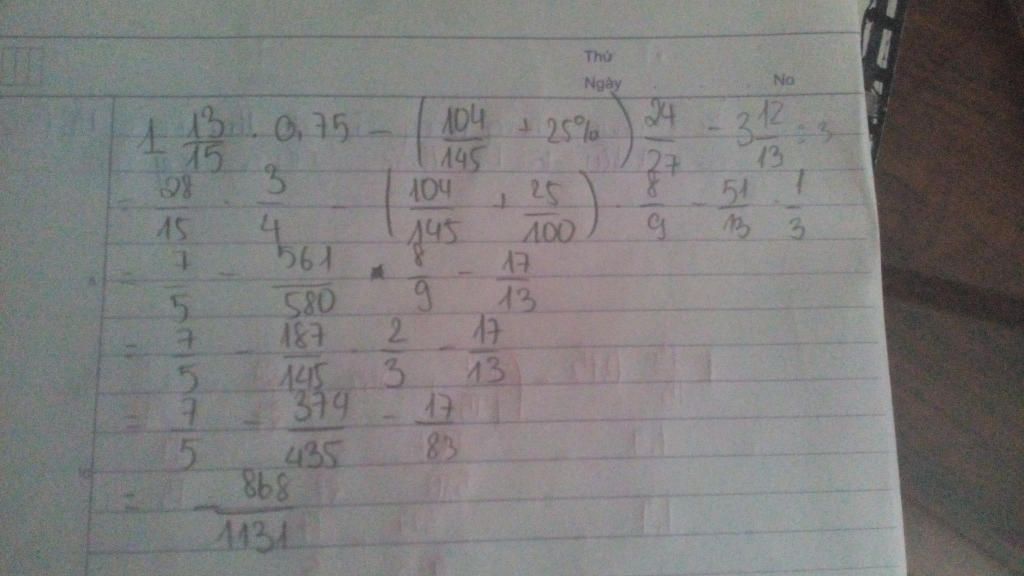 Thứ
Ngày No
1 13/15 . 0,75 - (104/145 + 25%) 24/27 - 3 12/13 : 3
= 28/15 . 3/4 - (104/145 + 25/100) . 8/9 - 51/13 . 1/3
= 7/5 - 561/580 . 8/9 - 17/13
= 7/5 - 187/145 . 2/3 - 17/13
= 7/5 - 374/435 - 17/83
= - 868/1131